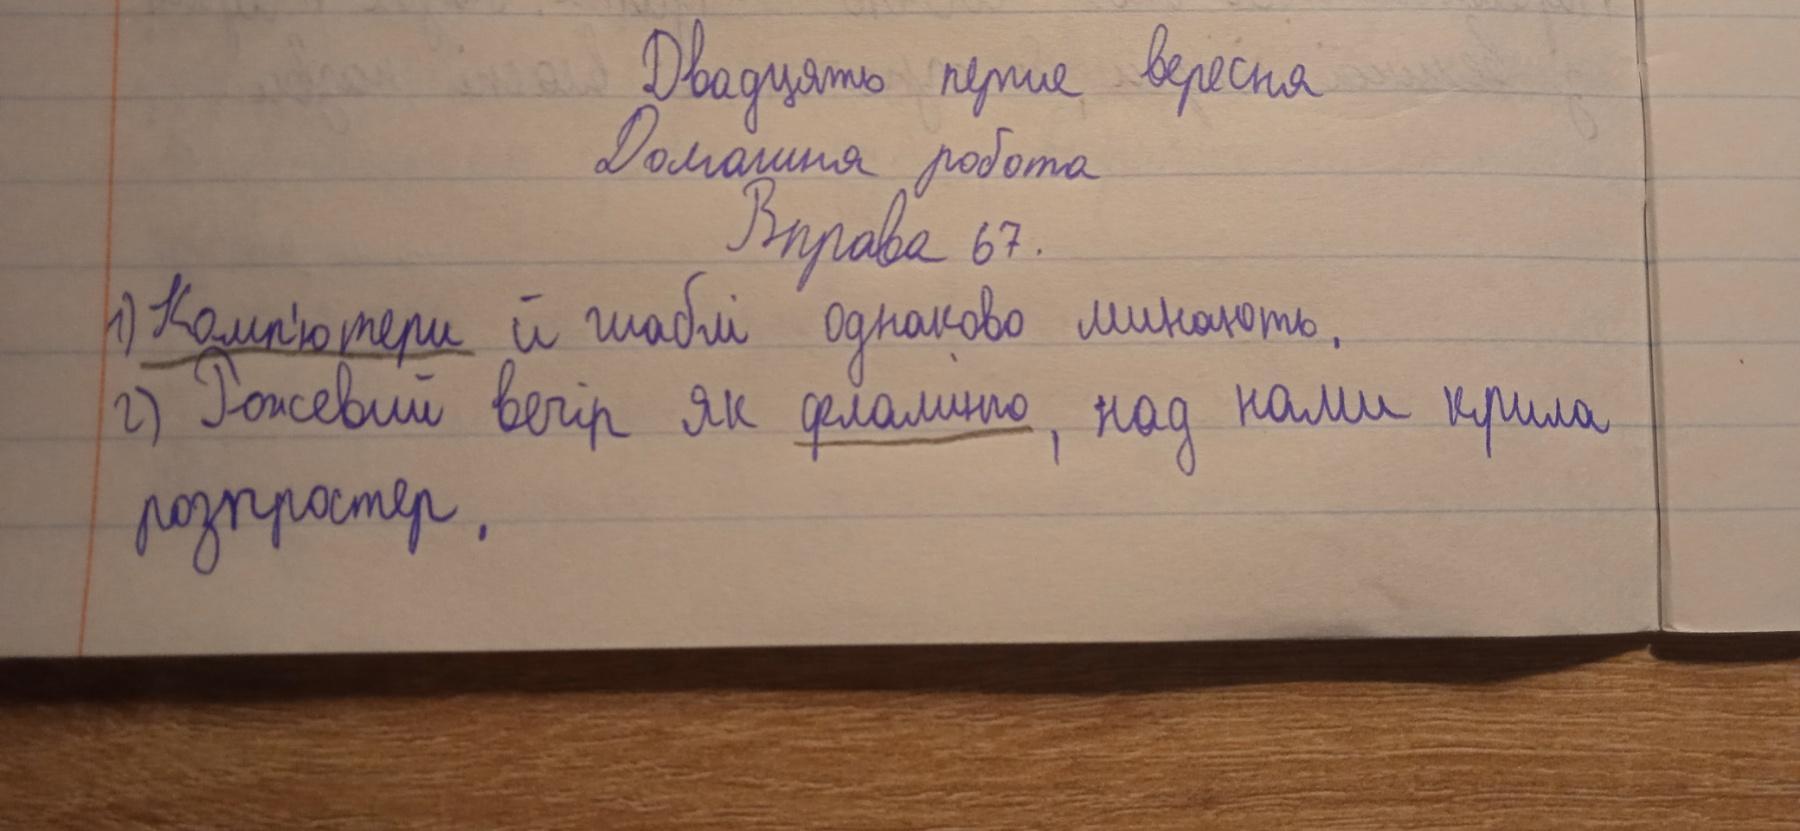 Двадцять перше вересня
Домашня робота
Вправа 67.
1) Комп'ютери й шаблі однаково минають.
2) Рожевий вечір як фламінго, над нами крила
розпростер.